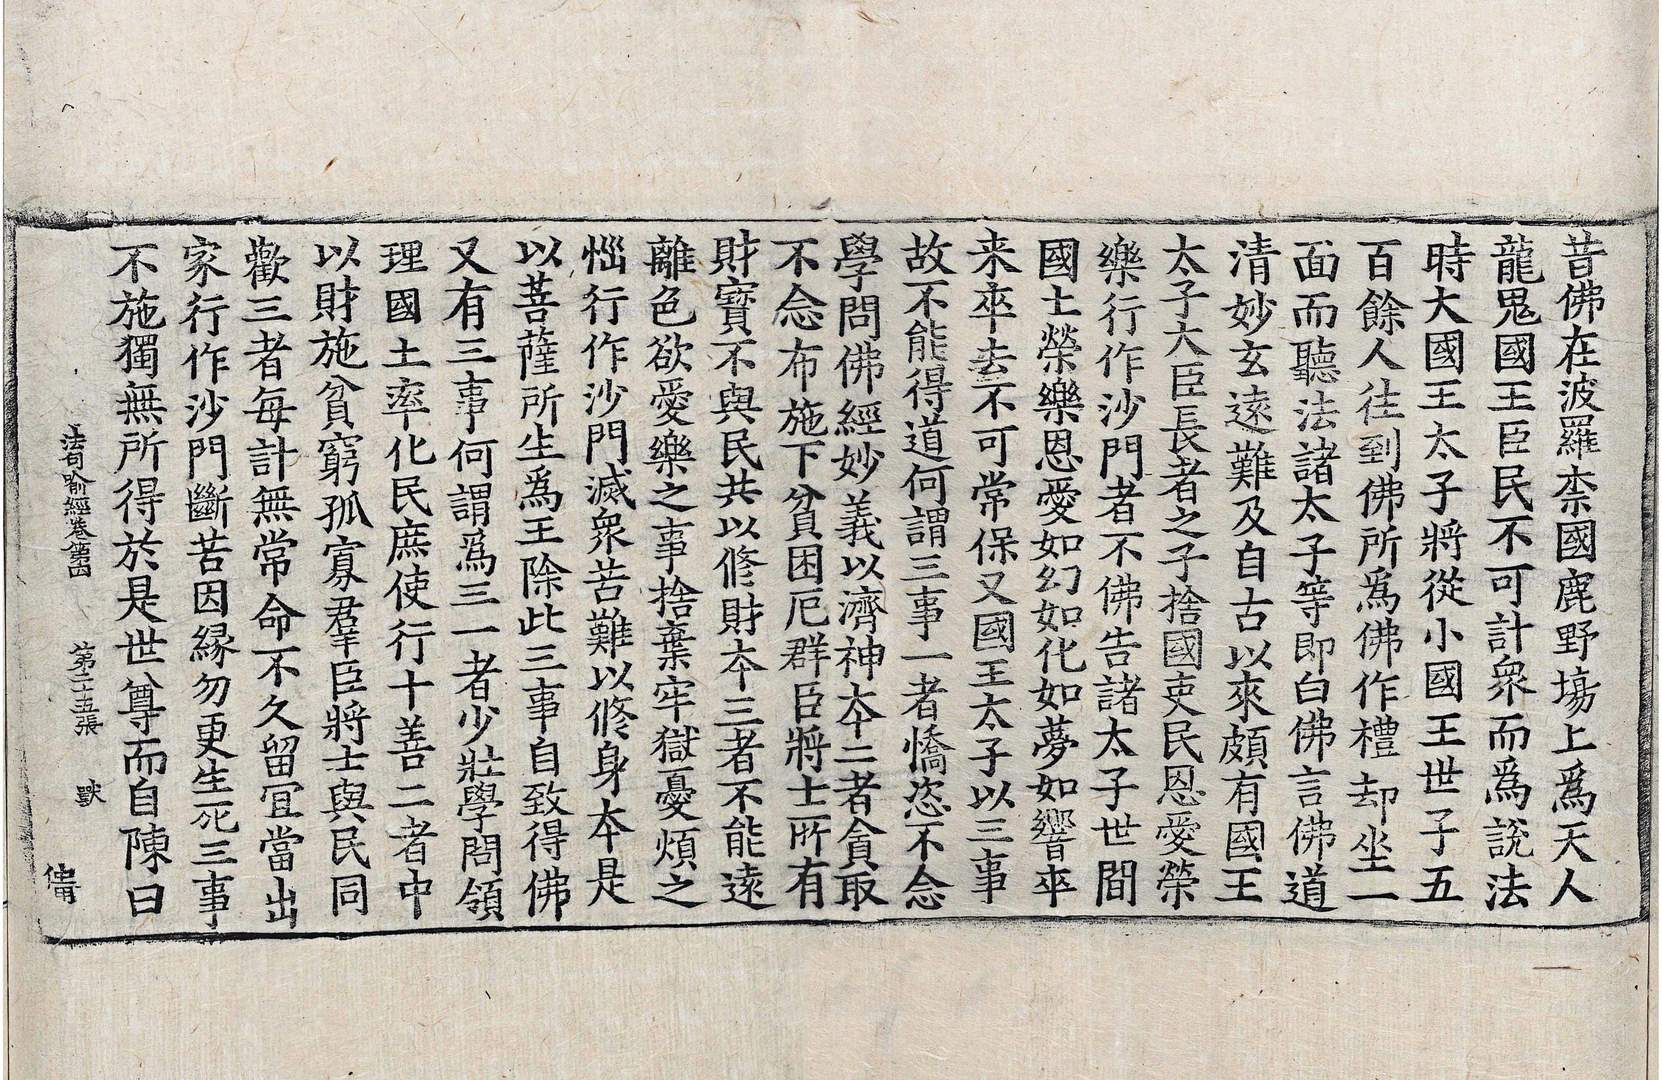 昔佛在波羅柰國鹿野場上爲天人
龍鬼國王臣民不可計衆而爲說法
時大國王太子將從小國王世子五
百餘人往到佛所爲佛作禮却坐一
面而聽法諸太子等即白佛言佛道
清妙玄遠難及自古以來頗有國王
太子大臣長者之子捨國吏民恩愛榮
樂行作沙門者不佛告諸太子世間
國土榮樂恩愛如幻如化如夢如響卒
来卒去不可常保又國王太子以三事
故不能得道何謂三事一者憍恣不念
學問佛經妙義以濟神本二者貪取
不念布施下貧困厄群臣將士所有
財寶不與民共以修財本三者不能遠
離色欲愛樂之事捨棄牢獄憂煩之
惱行作沙門滅衆苦難以修身本是
以菩薩所生爲王除此三事自致得佛
又有三事何謂爲三一者少壯學問領
理國土率化民庶使行十善二者中
以財施貧窮孤寡羣臣將士與民同
歡三者每計無常命不久留宜當出
家行作沙門斷苦因縁勿更生死三事
不施獨無所得於是世尊而自陳曰
法句喻經卷第四 第二十五張 獸